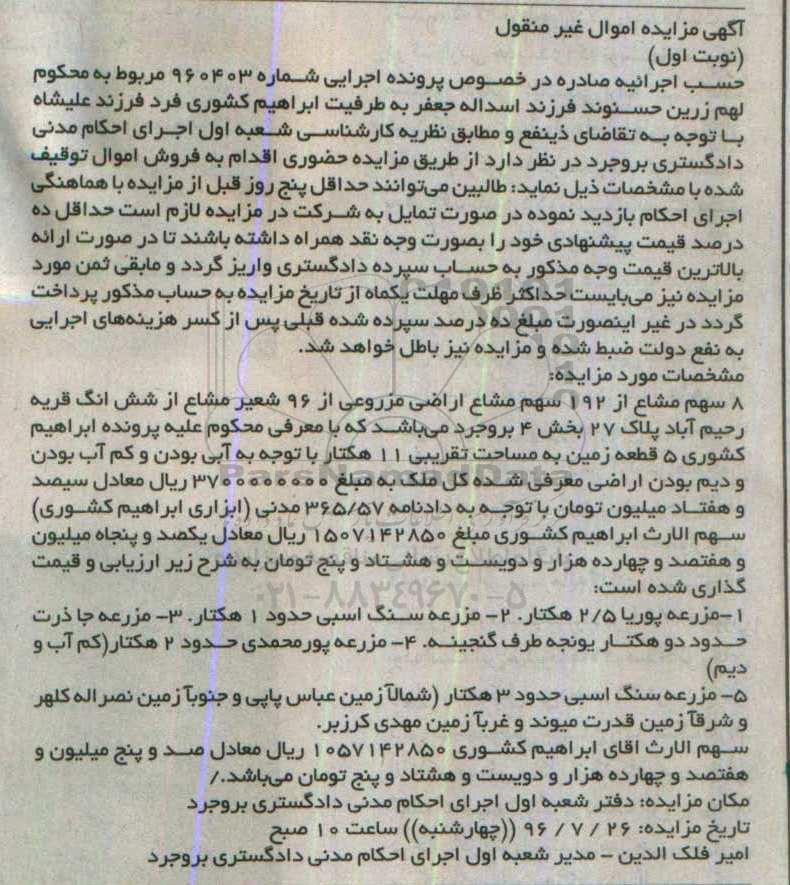 آگهی مزایده اموال غیر منقول
(نوبت اول)
حسب اجرائیه صادره در خصوص پرونده اجرایی شماره ۹۶۰۴۰۳ مربوط به محکوم
لهم زرین حسنوند فرزند اسداله جعفر به طرفیت ابراهیم کشوری فرد فرزند علیشاه
با توجه به تقاضای ذینفع و مطابق نظریه کارشناسی شعبه اول اجرای احکام مدنی
دادگستری بروجرد در نظر دارد از طریق مزایده حضوری اقدام به فروش اموال توقیف
شده با مشخصات ذیل نماید: طالبین می‌توانند حداقل پنج روز قبل از مزایده با هماهنگی
اجرای احکام بازدید نموده در صورت تمایل به شرکت در مزایده لازم است حداقل ده
درصد قیمت پیشنهادی خود را بصورت وجه نقد همراه داشته باشند تا در صورت ارائه
بالاترین قیمت وجه مذکور به حساب سپرده دادگستری واریز گردد و مابقی ثمن مورد
مزایده نیز می‌بایست حداکثر ظرف مهلت یکماه از تاریخ مزایده به حساب مذکور پرداخت
گردد در غیر اینصورت مبلغ ده درصد سپرده شده قبلی پس از کسر هزینه‌های اجرایی
به نفع دولت ضبط شده و مزایده نیز باطل خواهد شد.
مشخصات مورد مزایده:
۸ سهم مشاع از ۱۹۲ سهم مشاع اراضی مزروعی از ۹۶ شعیر مشاع از شش انگ قریه
رحیم آباد پلاک ۲۷ بخش ۴ بروجرد می‌باشد که با معرفی محکوم علیه پرونده ابراهیم
کشوری ۵ قطعه زمین به مساحت تقریبی ۱۱ هکتار با توجه به آبی بودن و کم آب بودن
و دیم بودن اراضی معرفی شده کل ملک به مبلغ ۳۷۰۰۰۰۰۰۰۰ ریال معادل سیصد
و هفتاد میلیون تومان با توجه به دادنامه ۳۶۵/۵۷ مدنی (ابزاری ابراهیم کشوری)
سهم الارث ابراهیم کشوری مبلغ ۱۵۰۷۱۴۲۸۵۰ ریال معادل یکصد و پنجاه میلیون
و هفتصد و چهارده هزار و دویست و هشتاد و پنج تومان به شرح زیر ارزیابی و قیمت
گذاری شده است:
۱-مزرعه پوریا ۲/۵ هکتار. ۲- مزرعه سنگ اسبی حدود ۱ هکتار. ۳- مزرعه جا ذرت
حدود دو هکتار یونجه طرف گنجینه. ۴- مزرعه پورمحمدی حدود ۲ هکتار(کم آب و
دیم)
۵- مزرعه سنگ اسبی حدود ۳ هکتار (شمالآ زمین عباس پاپی و جنوبآ زمین نصراله کلهر
و شرقآ زمین قدرت میوند و غربآ زمین مهدی کرزبر.
سهم الارث اقای ابراهیم کشوری ۱۰۵۷۱۴۲۸۵۰ ریال معادل صد و پنج میلیون و
هفتصد و چهارده هزار و دویست و هشتاد و پنج تومان می‌باشد./
مکان مزایده: دفتر شعبه اول اجرای احکام مدنی دادگستری بروجرد
تاریخ مزایده: ۲۶ / ۷ / ۹۶ ((چهارشنبه)) ساعت ۱۰ صبح
امیر فلک الدین - مدیر شعبه اول اجرای احکام مدنی دادگستری بروجرد
ParsNamadData
۰۲۱-۸۸۳۴۹۶۷۰-۵